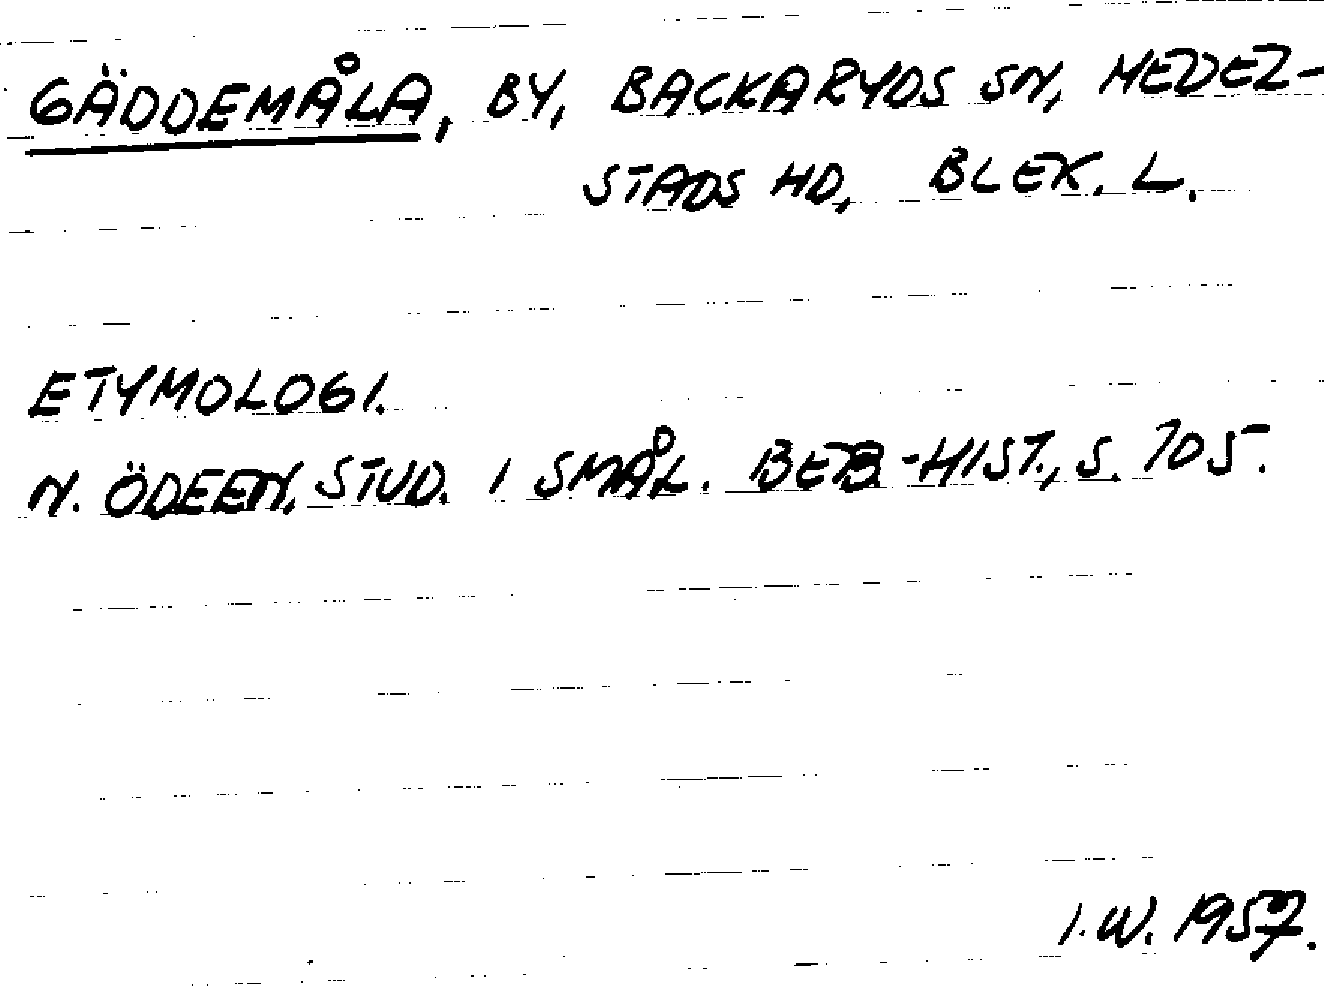 GÄDDEMÅLA, BY, BACKARYDS SN, MEDEL-
STADS HD, BLEK. L.
ETYMOLOGI.
N. ÖDEEN, STUD. I SMÅL. BEB.-HIST., S. 705.
I.W. 1957.